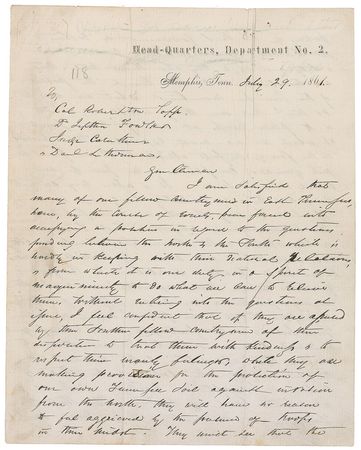 Head-Quarters, Department No. 2.
118
Memphis, Tenn. July 29. 1861.
To,
Col Robertson Topp.
Judge Caruthers
Gentlemen
I am satisfied that
many of our fellow countrymen in East Tennessee,
have, by the course of events, been forced into
occupying a position in regard to the questions
pending between the North & the South which is
hardly in keeping with their natural relations,
& from which it is our duty in a spirit of
magnanimity to do what we can to relieve
them. Without entering into the questions at
issue, I feel confident that if they are assured
by their Southern fellow countrymen of their
disposition to treat them with kindness & to
respect their manly feelings, while they are
making provision for the protection of
our own Tennessee soil against invasion
from the North, they will have no reason
to feel aggrieved by the presence of troops
in their midst. They must see that the